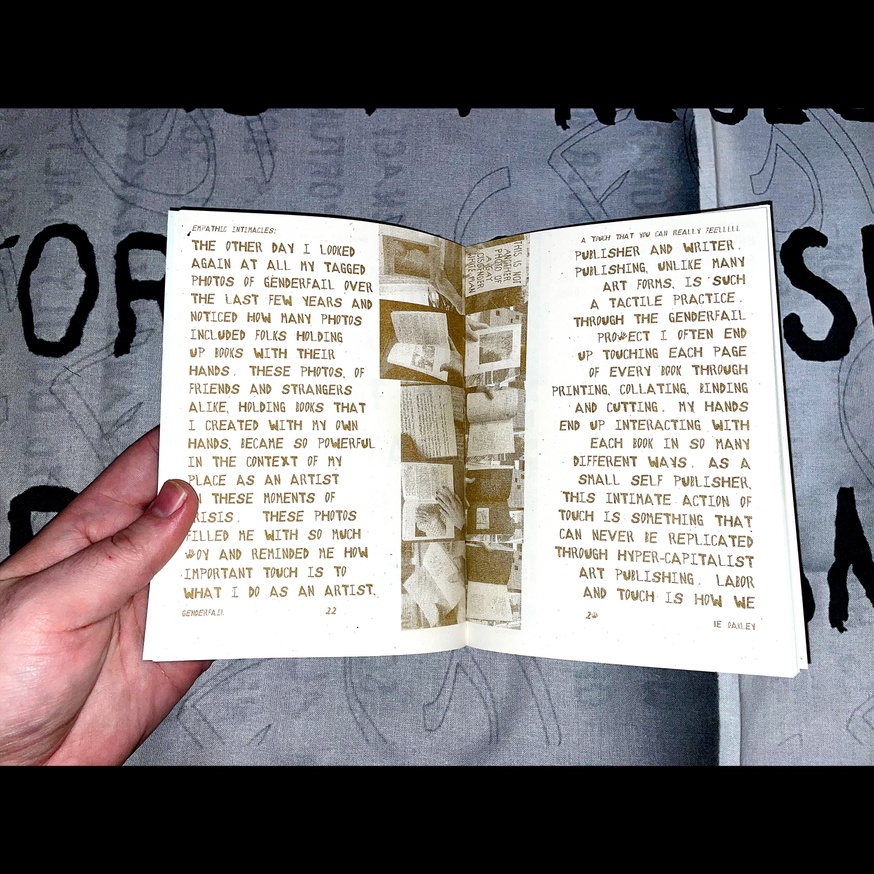 EMPATHIC INTIMACIES:
THE OTHER DAY I LOOKED
AGAIN AT ALL MY TAGGED
PHOTOS OF GENDERFAIL OVER
THE LAST FEW YEARS AND
NOTICED HOW MANY PHOTOS
INCLUDED FOLKS HOLDING
UP BOOKS WITH THEIR
HANDS. THESE PHOTOS, OF
FRIENDS AND STRANGERS
ALIKE, HOLDING BOOKS THAT
I CREATED WITH MY OWN
HANDS, BECAME SO POWERFUL
IN THE CONTEXT OF MY
PLACE AS AN ARTIST
IN THESE MOMENTS OF
CRISIS. THESE PHOTOS
FILLED ME WITH SO MUCH
JOY AND REMINDED ME HOW
IMPORTANT TOUCH IS TO
WHAT I DO AS AN ARTIST,
GENDERFAIL 22
THIS IS NOT
ANOTHER
PHOTO OF
A GAY
CISGENDER
WHITE MAN
A TOUCH THAT YOU CAN REALLY FEELLLLL
PUBLISHER AND WRITER.
PUBLISHING, UNLIKE MANY
ART FORMS, IS SUCH
A TACTILE PRACTICE.
THROUGH THE GENDERFAIL
PROJECT I OFTEN END
UP TOUCHING EACH PAGE
OF EVERY BOOK THROUGH
PRINTING, COLLATING, BINDING
AND CUTTING. MY HANDS
END UP INTERACTING WITH
EACH BOOK IN SO MANY
DIFFERENT WAYS. AS A
SMALL SELF PUBLISHER,
THIS INTIMATE ACTION OF
TOUCH IS SOMETHING THAT
CAN NEVER BE REPLICATED
THROUGH HYPER-CAPITALIST
ART PUBLISHING. LABOR
AND TOUCH IS HOW WE
BE OAKLEY
TOR